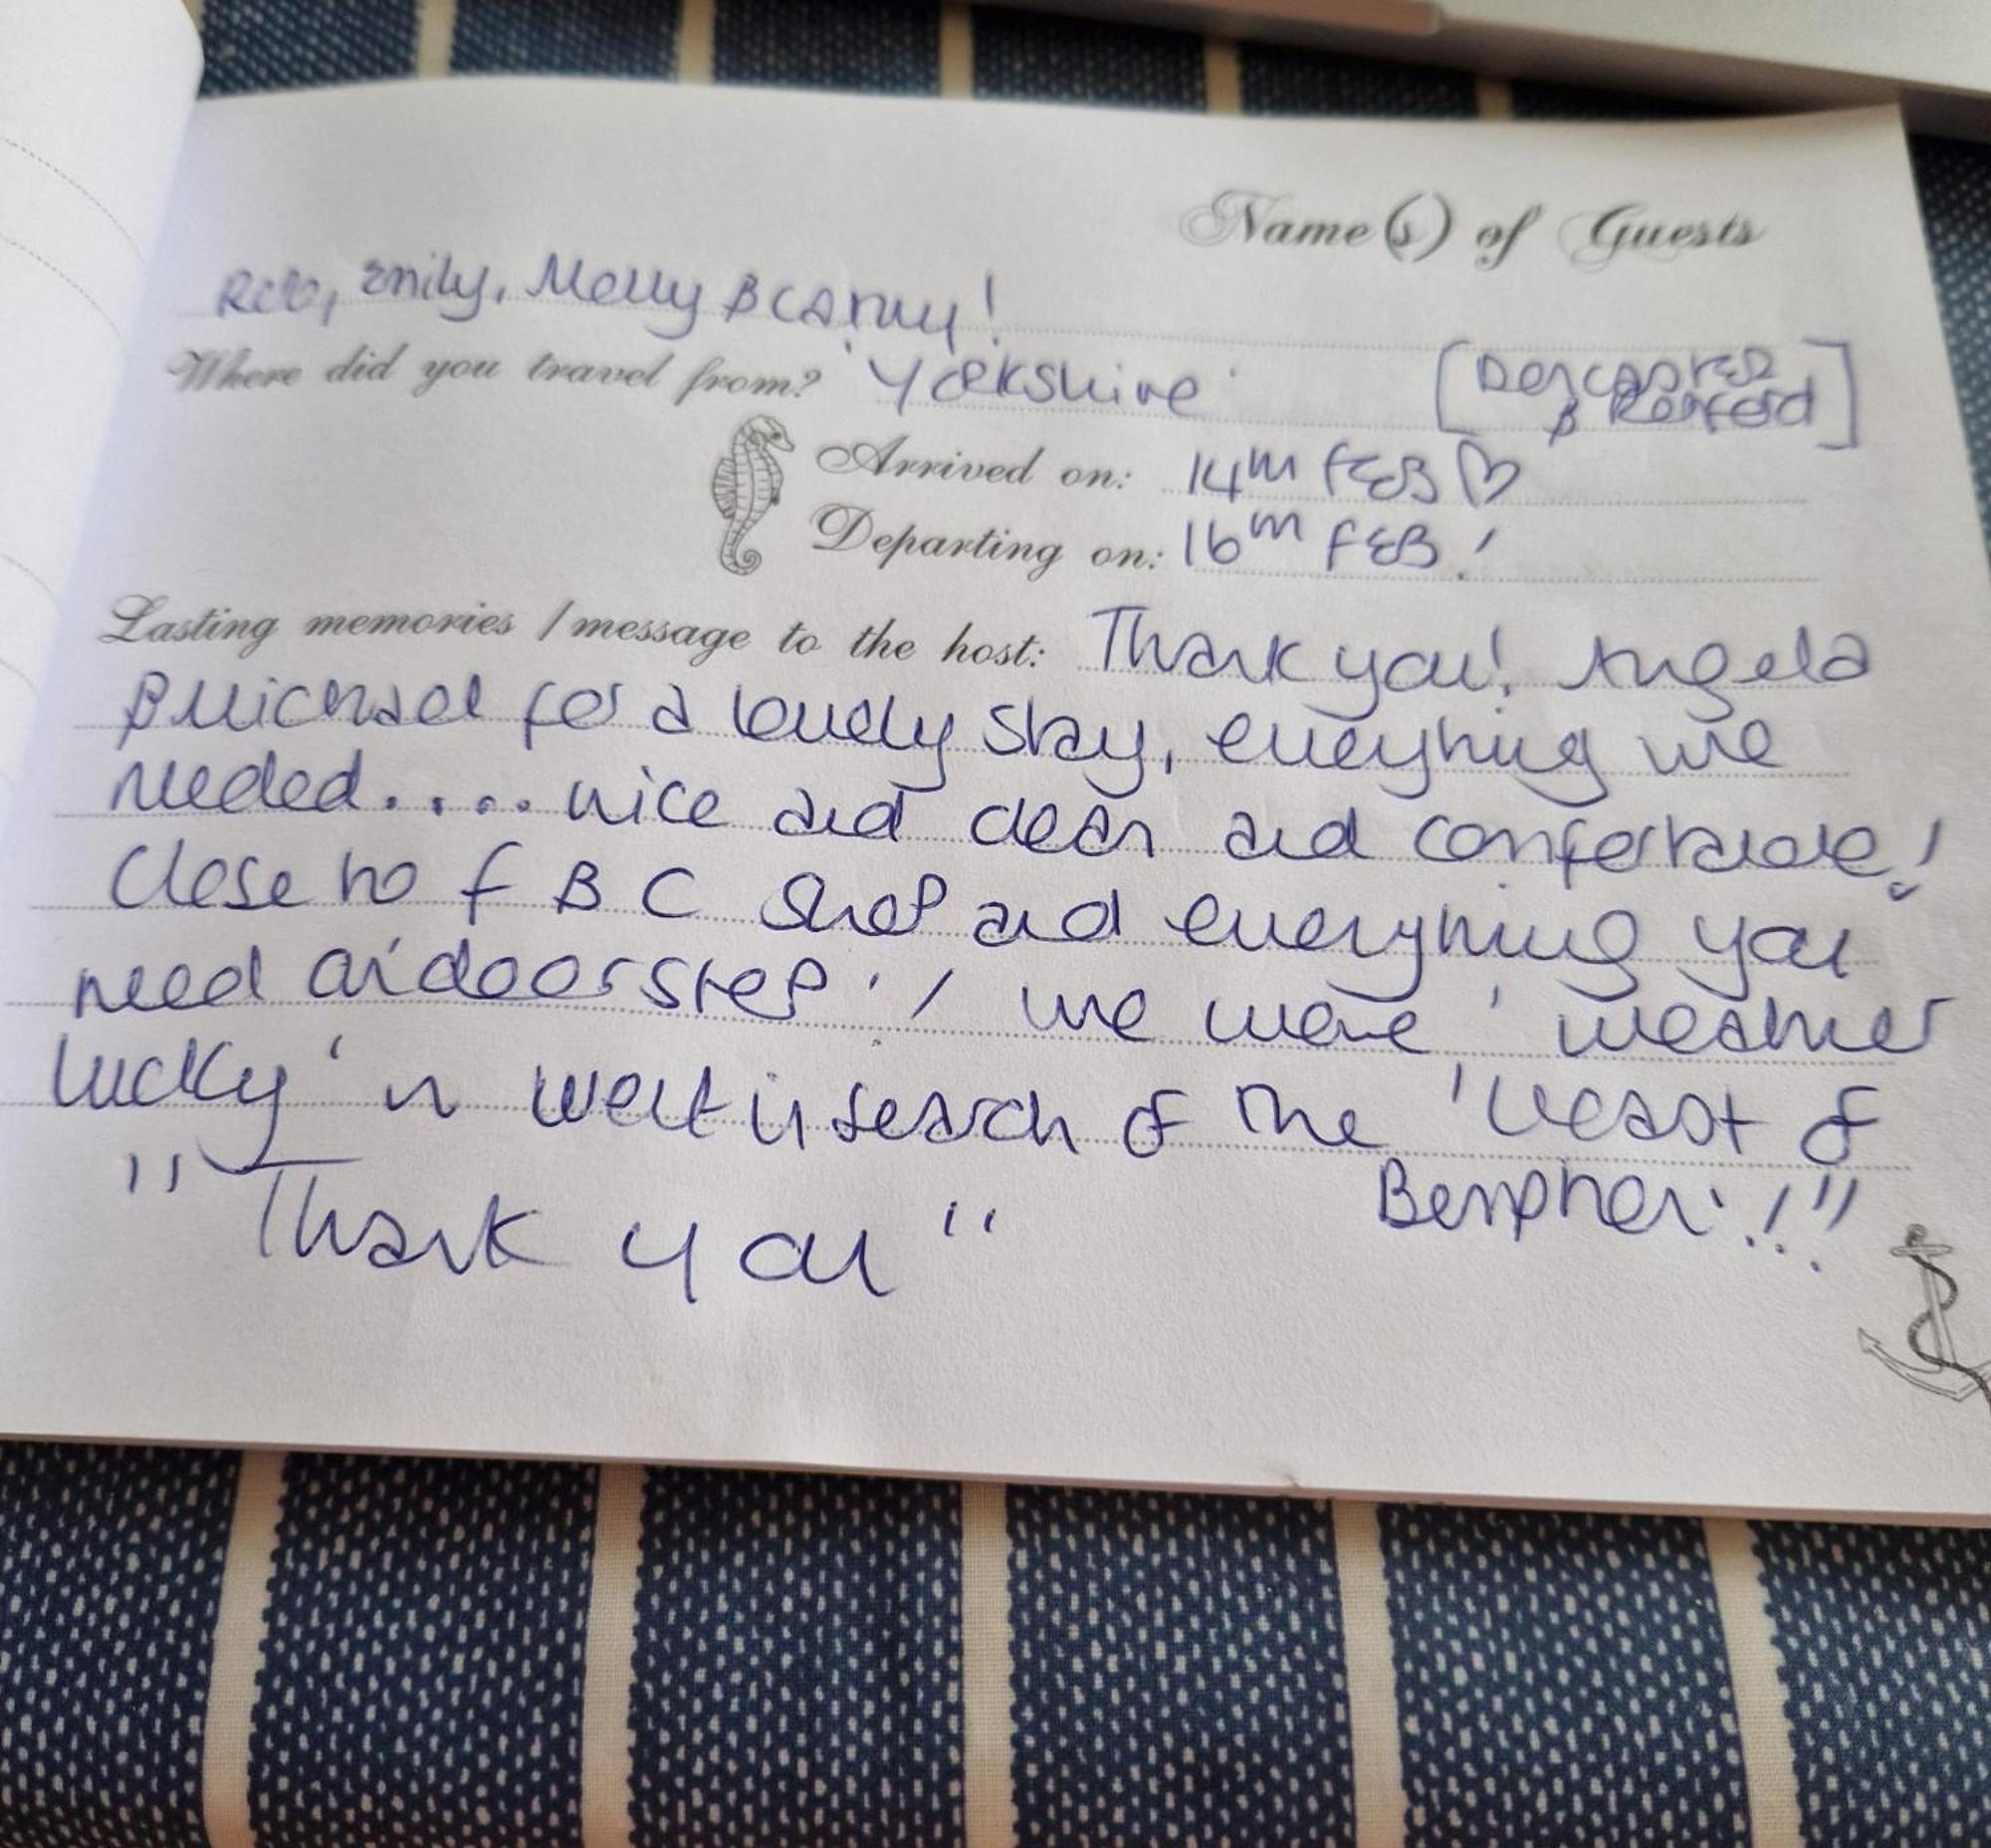 Name(s) of Guests
Rob, Emily, Molly &
Where did you travel from? 'Yorkshire' [Doncaster
& Retford]
Arrived on: 14th FEB ♡
Departing on: 16th FEB!
Lasting memories / message to the host: Thank you! Angela
& Michael for a lovely stay, everything we
needed.... nice and clean and comfortable!
Close to F B C shop and everything you
need on doorstep! we were 'weather
lucky' n went in search of the 'Beast of
"Thank you"